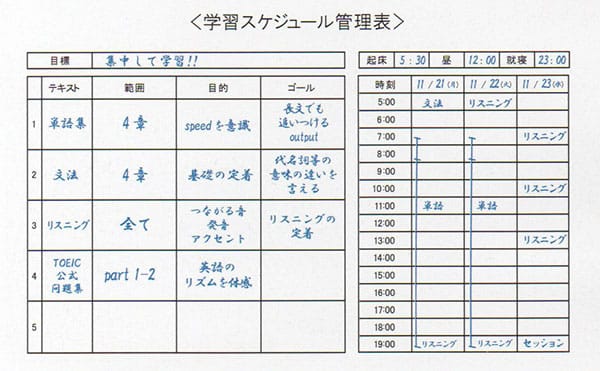 ＜学習スケジュール管理表＞
目標 集中して学習!!
起床 5:30 昼 12:00 就寝 23:00
テキスト 範囲 目的 ゴール
1 単語集 4章 speedを意識 長文でも追いつけるoutput
2 文法 4章 基礎の定着 代名詞等の意味の違いを言える
3 リスニング 全て つながる音 発音 アクセント リスニングの定着
4 TOEIC公式問題集 part 1-2 英語のリズムを体感
5
時刻 11/21(月) 11/22(火) 11/23(水)
5:00 文法 リスニング
6:00
7:00 リスニング
8:00
9:00
10:00 リスニング
11:00 単語 単語
12:00
13:00 リスニング
14:00
15:00
16:00
17:00
18:00
19:00 リスニング リスニング セッション